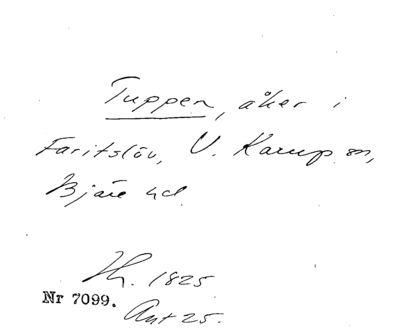 Tuppen, åker i
Faritslöv, V. Karup sn,
Bjäre hd.
Hh. 1825
Nr 7099.
Ant 25.